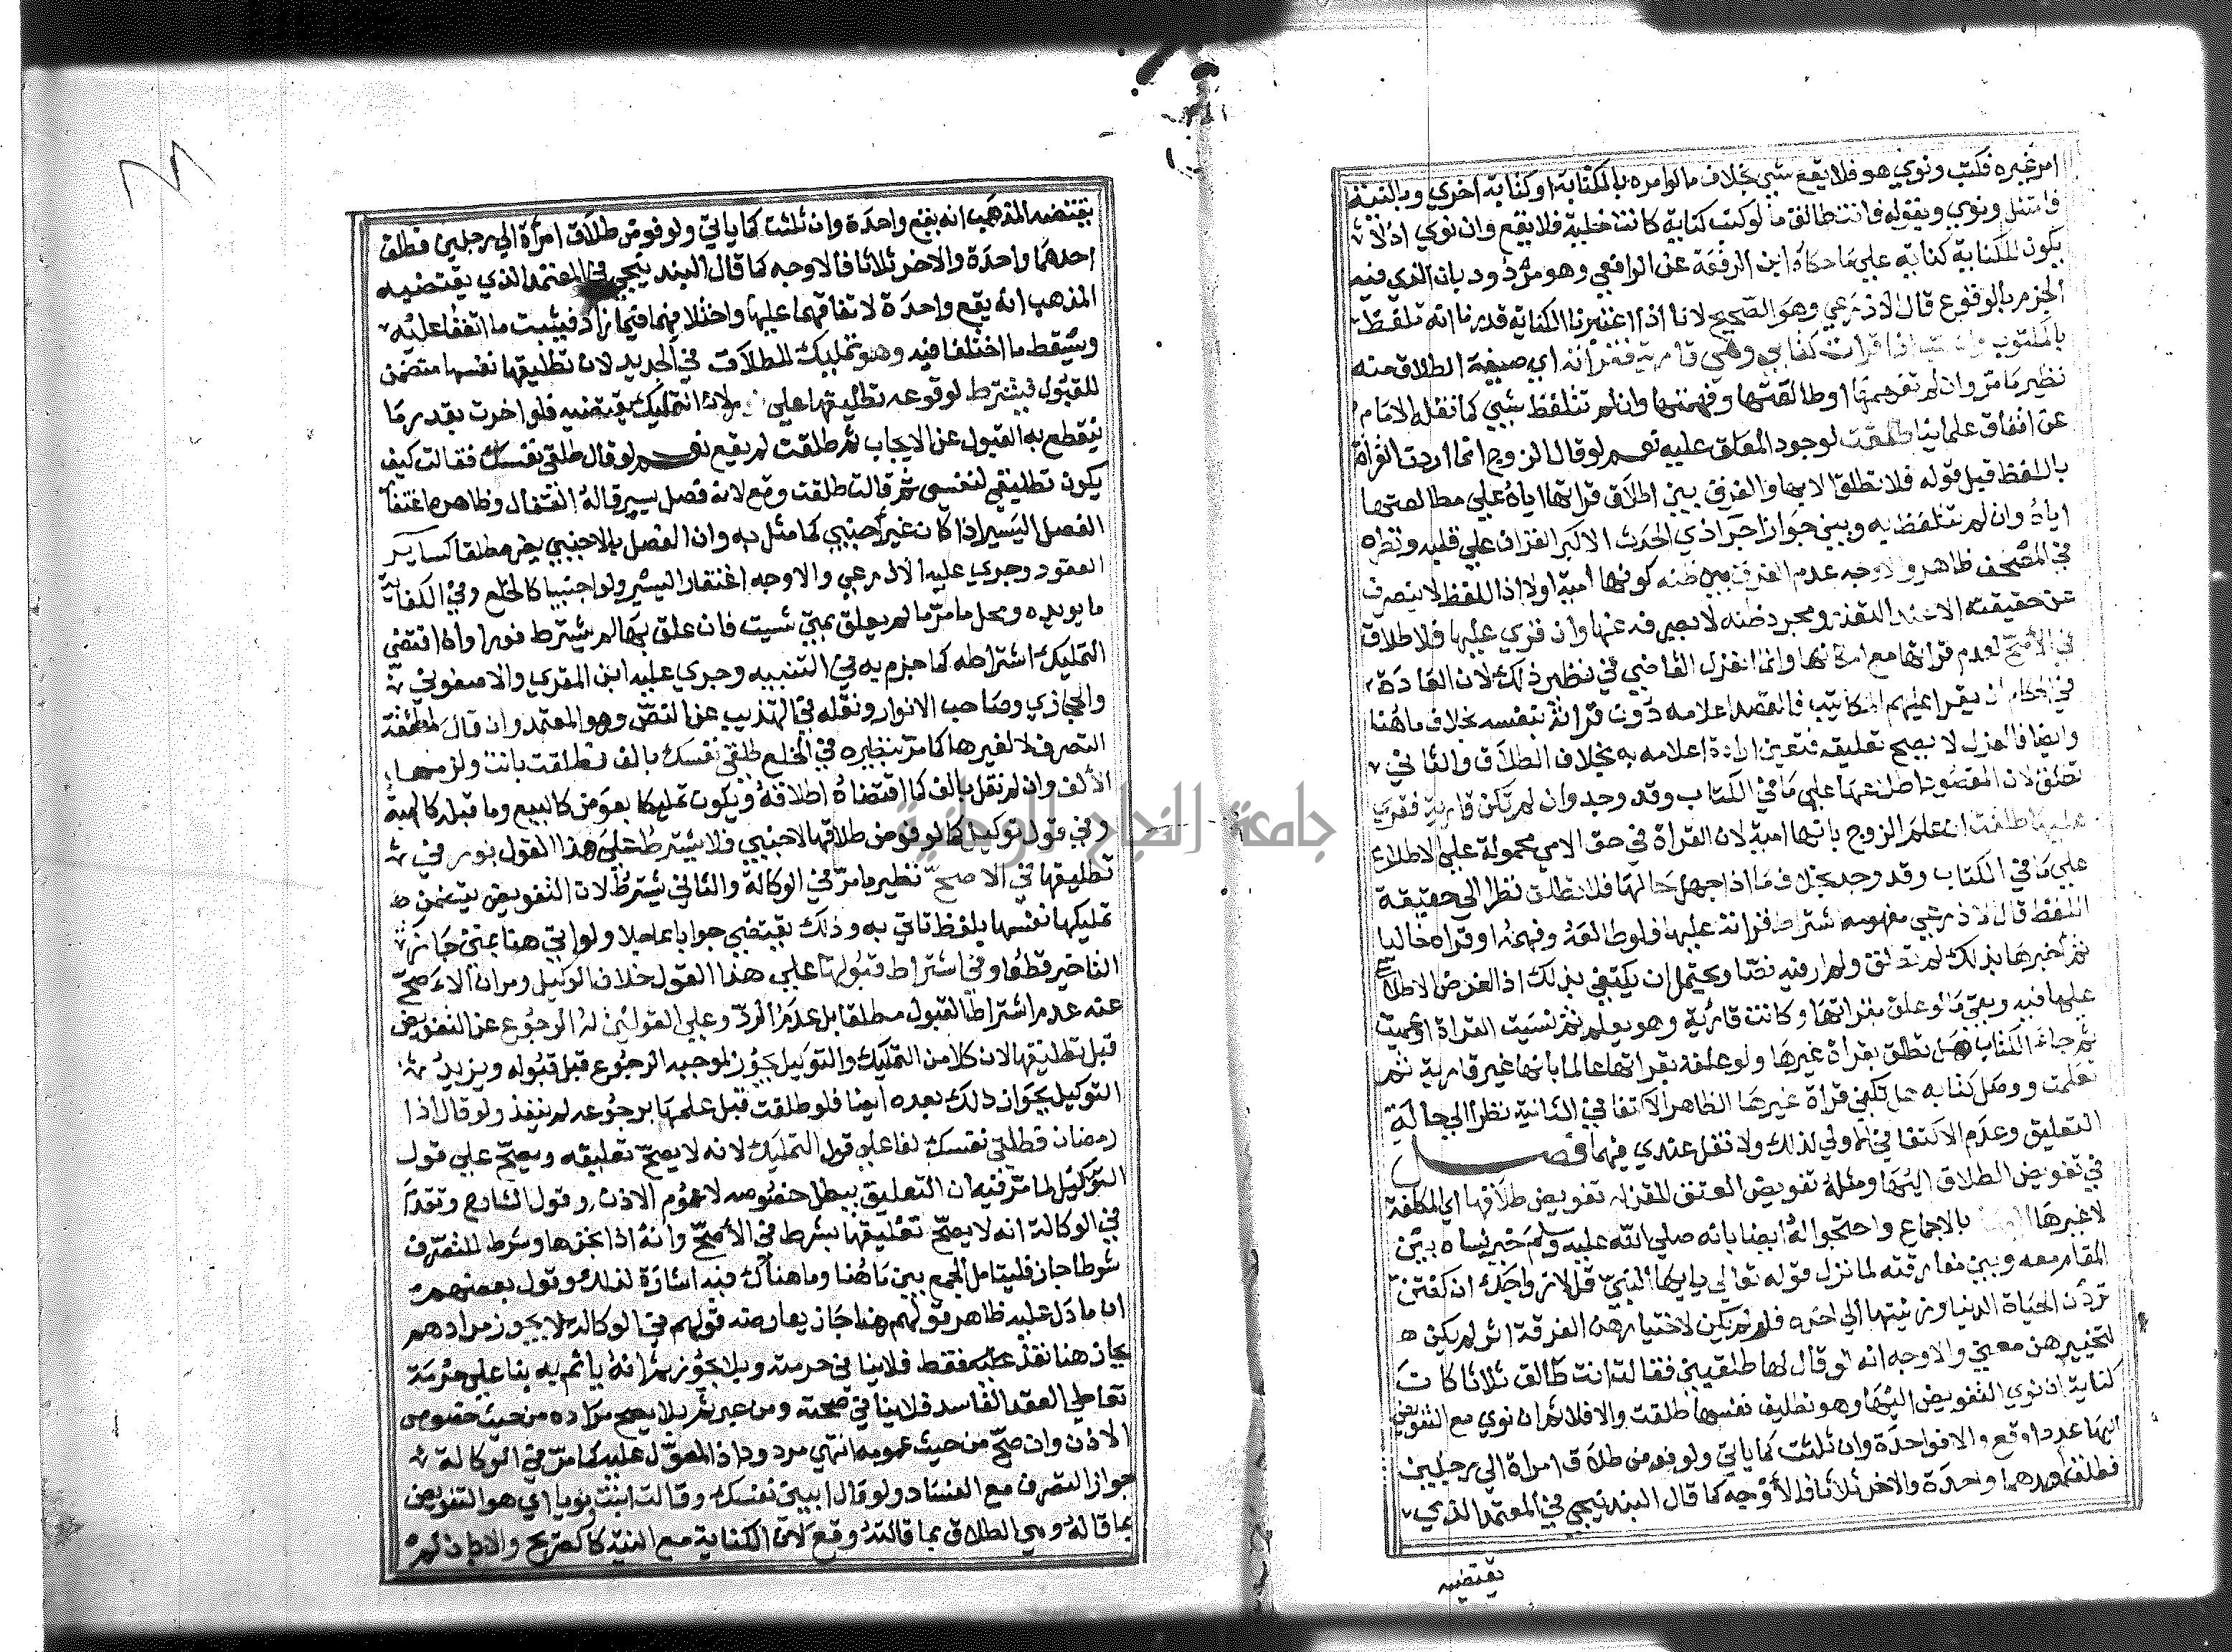 امر غيره فكتب ونوى هو فلا يقع شيء بخلاف ما لو امره بالكتابة او كناية اخري وبالنية
فامتثل ونوي وبقوله فانت طالق ما لو كتب كناية كانت خلية فلا يقع وان نوي اذ لا
يكون للكناية كناية علي ما حكاه ابن الرفعة عن الرافعي وهو مردود بان الذي فيه
الجزم بالوقوع قال الاذرعي وهو الصحيح لانا اذا اعتبرنا الكتابة قدرنا انه تلفظ
بالمكتوب وان كتب اذا قرات كتابي وهي قارية فقراته اي صيغة الطلاق منه
نظير ما مر وان لم تفهمها او طالعتها وفهمتها وان لم تتلفظ بشيء كما نقله الامام
عن اتفاق علماينا طلقت لوجود المعلق عليه نعم لو قال الزوج انما اردت القراة
باللفظ قبل قوله فلا تطلق الا بها والفرق بين اطلاق قراتها اياه علي مطالعتها
اياه وان لم تتلفظ به وبين جواز اجرا ذي الحدث الاكبر القران علي قلبه ونظره
في المصحف ظاهر والاوجه عدم الفرق بين ظنه كونها امية اولا اذ اللفظ لا ينصرف
عن حقيقته الا عند التعذر ومجرد ظنه لا يصرفه عنها وان قري عليها فلا طلاق
في الاصح لعدم قراتها مع امكانها وانما انعزل القاضي في نظير ذلك لان العادة
في الحكام ان يقرا عليهم المكاتيب فالقصد اعلامه دون قراته بنفسه بخلاف ما هنا
وايضا فالعزل لا يصح تعليقه فتعين ارادة اعلامه به بخلاف الطلاق والثاني
تطلق لان المقصود اطلاعها علي ما في الكتاب وقد وجد وان لم تكن قارية فقري
عليها طلقت ان علم الزوج بانها امية لان القراة في حق الامي محمولة علي الاطلاع
علي ما في الكتاب وقد وجد بخلاف ما اذا جهل حالها فلا تطلق نظرا الي حقيقة
اللفظ قال الاذرعي مفهومه اشتراط قراته عليها فلو طالعه وفهمه او قراه خاليا
ثم اخبرها بذلك لم تطلق ولم ار فيه نصا ويحتمل ان يكتفي بذلك اذ الغرض الاطلاع
عليها فيه وبقي ما لو علق بقراتها وكانت قارية وهو يعلم ثم نسيت القراة او عميت
ثم جاء الكتاب هل تطلق بقراة غيرها ولو علقه بقراتها عالما بانها غير قارية ثم
تعلمت ووصل كتابه هل تكفي قراة غيرها الظاهر الاكتفا في الثانية نظرا الي حالة
التعليق وعدم الاكتفا في الاولي لذلك ولا نقل عندي فيهما فصل
في تفويض الطلاق اليها ومثله تفويض العتق للقن له تفويض طلاقها اي المكلفة
لا غيرها بالاجماع واحتجوا له ايضا بانه صلى الله عليه وسلم خير نساه بين
المقام معه وبين مفارقته لما نزل قوله تعالي يا ايها النبي قل لازواجك ان كنتن
تردن الحياة الدنيا وزينتها الي اخره فلو لم يكن لاختيارهن الفرقة اثر لم يكن
لتخييرهن معني والاوجه انه لو قال لها طلقيني فقالت انت طالق ثلاثا كان
كناية ان نوي التفويض اليها وهو تطليق نفسها طلقت والا فلا ثم ان نوي مع التفويض
اليها عددا وقع والا فواحدة وان ثلثت كما ياتي ولو فوض طلاق امراة الي رجلين
فطلق احدهما واحدة والاخر ثلاثا فالاوجه كما قال البندنيجي في المعتمد الذي
يقتضيه
يقتضيه المذهب انه يقع واحدة وان ثلثت كما ياتي ولو فوض طلاق امراة الي رجلين فطلق
احدهما واحدة والاخر ثلاثا فالاوجه كما قال البندنيجي في المعتمد الذي يقتضيه
المذهب انه يقع واحدة لاتفاقهما عليها واختلافهما فيما زاد فيثبت ما اتفقا عليه
ويسقط ما اختلفا فيه وهو تمليك للطلاق في الجديد لان تطليقها نفسها متضمن
للقبول فيشترط لوقوعه تطليقها علي لان التمليك يقتضيه فلو اخرت بقدر ما
ينقطع به القبول عن الايجاب ثم طلقت لم يقع نعم لو قال طلقي نفسك فقالت كيف
يكون تطليقي لنفسي ثم قالت طلقت وقع لانه فصل يسير قاله القفال وظاهره اغتفار
الفصل اليسير اذا كان غير اجنبي كما مثل به وان الفصل بالاجنبي يضر مطلقا كساير
العقود وجري عليه الاذرعي والاوجه اغتفار اليسير ولو اجنبيا كالخلع وفي الكفاية
ما يويده ومحل ما مر ما لم يعلق بمتي شيت فان علق بها لم يشترط فورا وان اقتضي
التمليك اشتراطه كما جزم به في التنبيه وجري عليه ابن المقري والاصفوني
والحجازي وصاحب الانوار ونقله في التهذيب عن النص وهو المعتمد وان قال لمطلقة
التصرف لا لغيرها كما مر نظيره في الخلع طلقي نفسك بالف فطلقت بانت ولزمها
الالف وان لم تقل بالف كما اقتضاه اطلاقه ويكون تمليكا بعوض كالبيع وما قبله كالهبة
وفي قول توكيل كما لو فوض طلاقها لاجنبي فلا يشترط علي هذا القول فور في
تطليقها في الاصح نظير ما مر في الوكالة والثاني يشترط لان التفويض يتضمن
تمليكها نفسها بلفظ تاتي به وذلك يقتضي جوابا عاجلا ولو اتي هنا بمتي جاز
التاخير قطعا وفي اشتراط قبولها علي هذا القول خلاف الوكيل ومر ان الاصح
عنه عدم اشتراط القبول مطلقا بل عدم الرد وعلي القولين له الرجوع عن التفويض
قبل تطليقها لان كلا من التمليك والتوكيل يجوز لموجبه الرجوع قبل قبوله ويزيد
التوكيل بجواز ذلك بعده ايضا فلو طلقت قبل علمها برجوعه لم ينفذ ولو قال اذا
رمضان فطلقي نفسك لغا علي قول التمليك لانه لا يصح تعليقه ويصح علي قول
التوكيل لما مر فيه ان التعليق يبطل خصوصه لا عموم الاذن وقول الشارح وتقدم
في الوكالة انه لا يصح تعليقها بشرط في الاصح وانه اذا نجزها وشرط للتصرف
شرطا جاز فليتامل الجمع بين ما هنا وما هناك فيه اشارة لذلك وقول بعضهم
ان ما دل عليه ظاهر قولهم هنا جاز يعارضه قولهم في الوكالة لا يجوز مرادهم
بجاز هنا نفذ فقط فلا ينافي حرمته وبلا يجوز ثم انه ياثم به بنا علي حرمة
تعاطي العقد الفاسد فلا ينافي صحته ومن عبر ثم بلا يصح مراده من حيث خصوص
الاذن وان صح من حيث عمومه انتهي مردود اذ المعول عليه كما مر في الوكالة
جواز التصرف مع الفساد ولو قال ابيني نفسك وقالت ابنت ونويا اي هو التفويض
بما قاله وهي الطلاق بما قالته وقع لان الكناية مع النية كالصريح والا بان لم